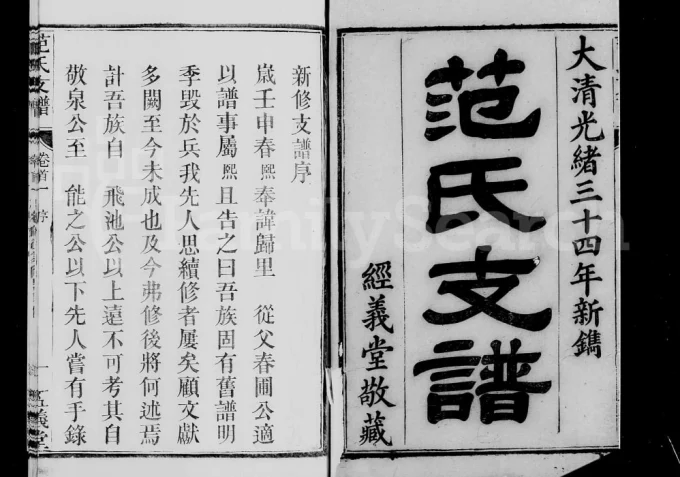 大清光緒三十四年新鐫
范氏支譜
經義堂敬藏
新修支譜序
嵗壬申春熙奉諱歸里 從父春圃公適
以譜事屬熙且告之曰吾族固有舊譜明
季毀於兵我先人思續修者屢矣顧文獻
多闕至今未成也及今弗修後將何述焉
計吾族自 飛池公以上遠不可考其自
敬泉公至 能之公以下先人嘗有手錄
范氏支譜 卷首一 序 一
FamilySearch